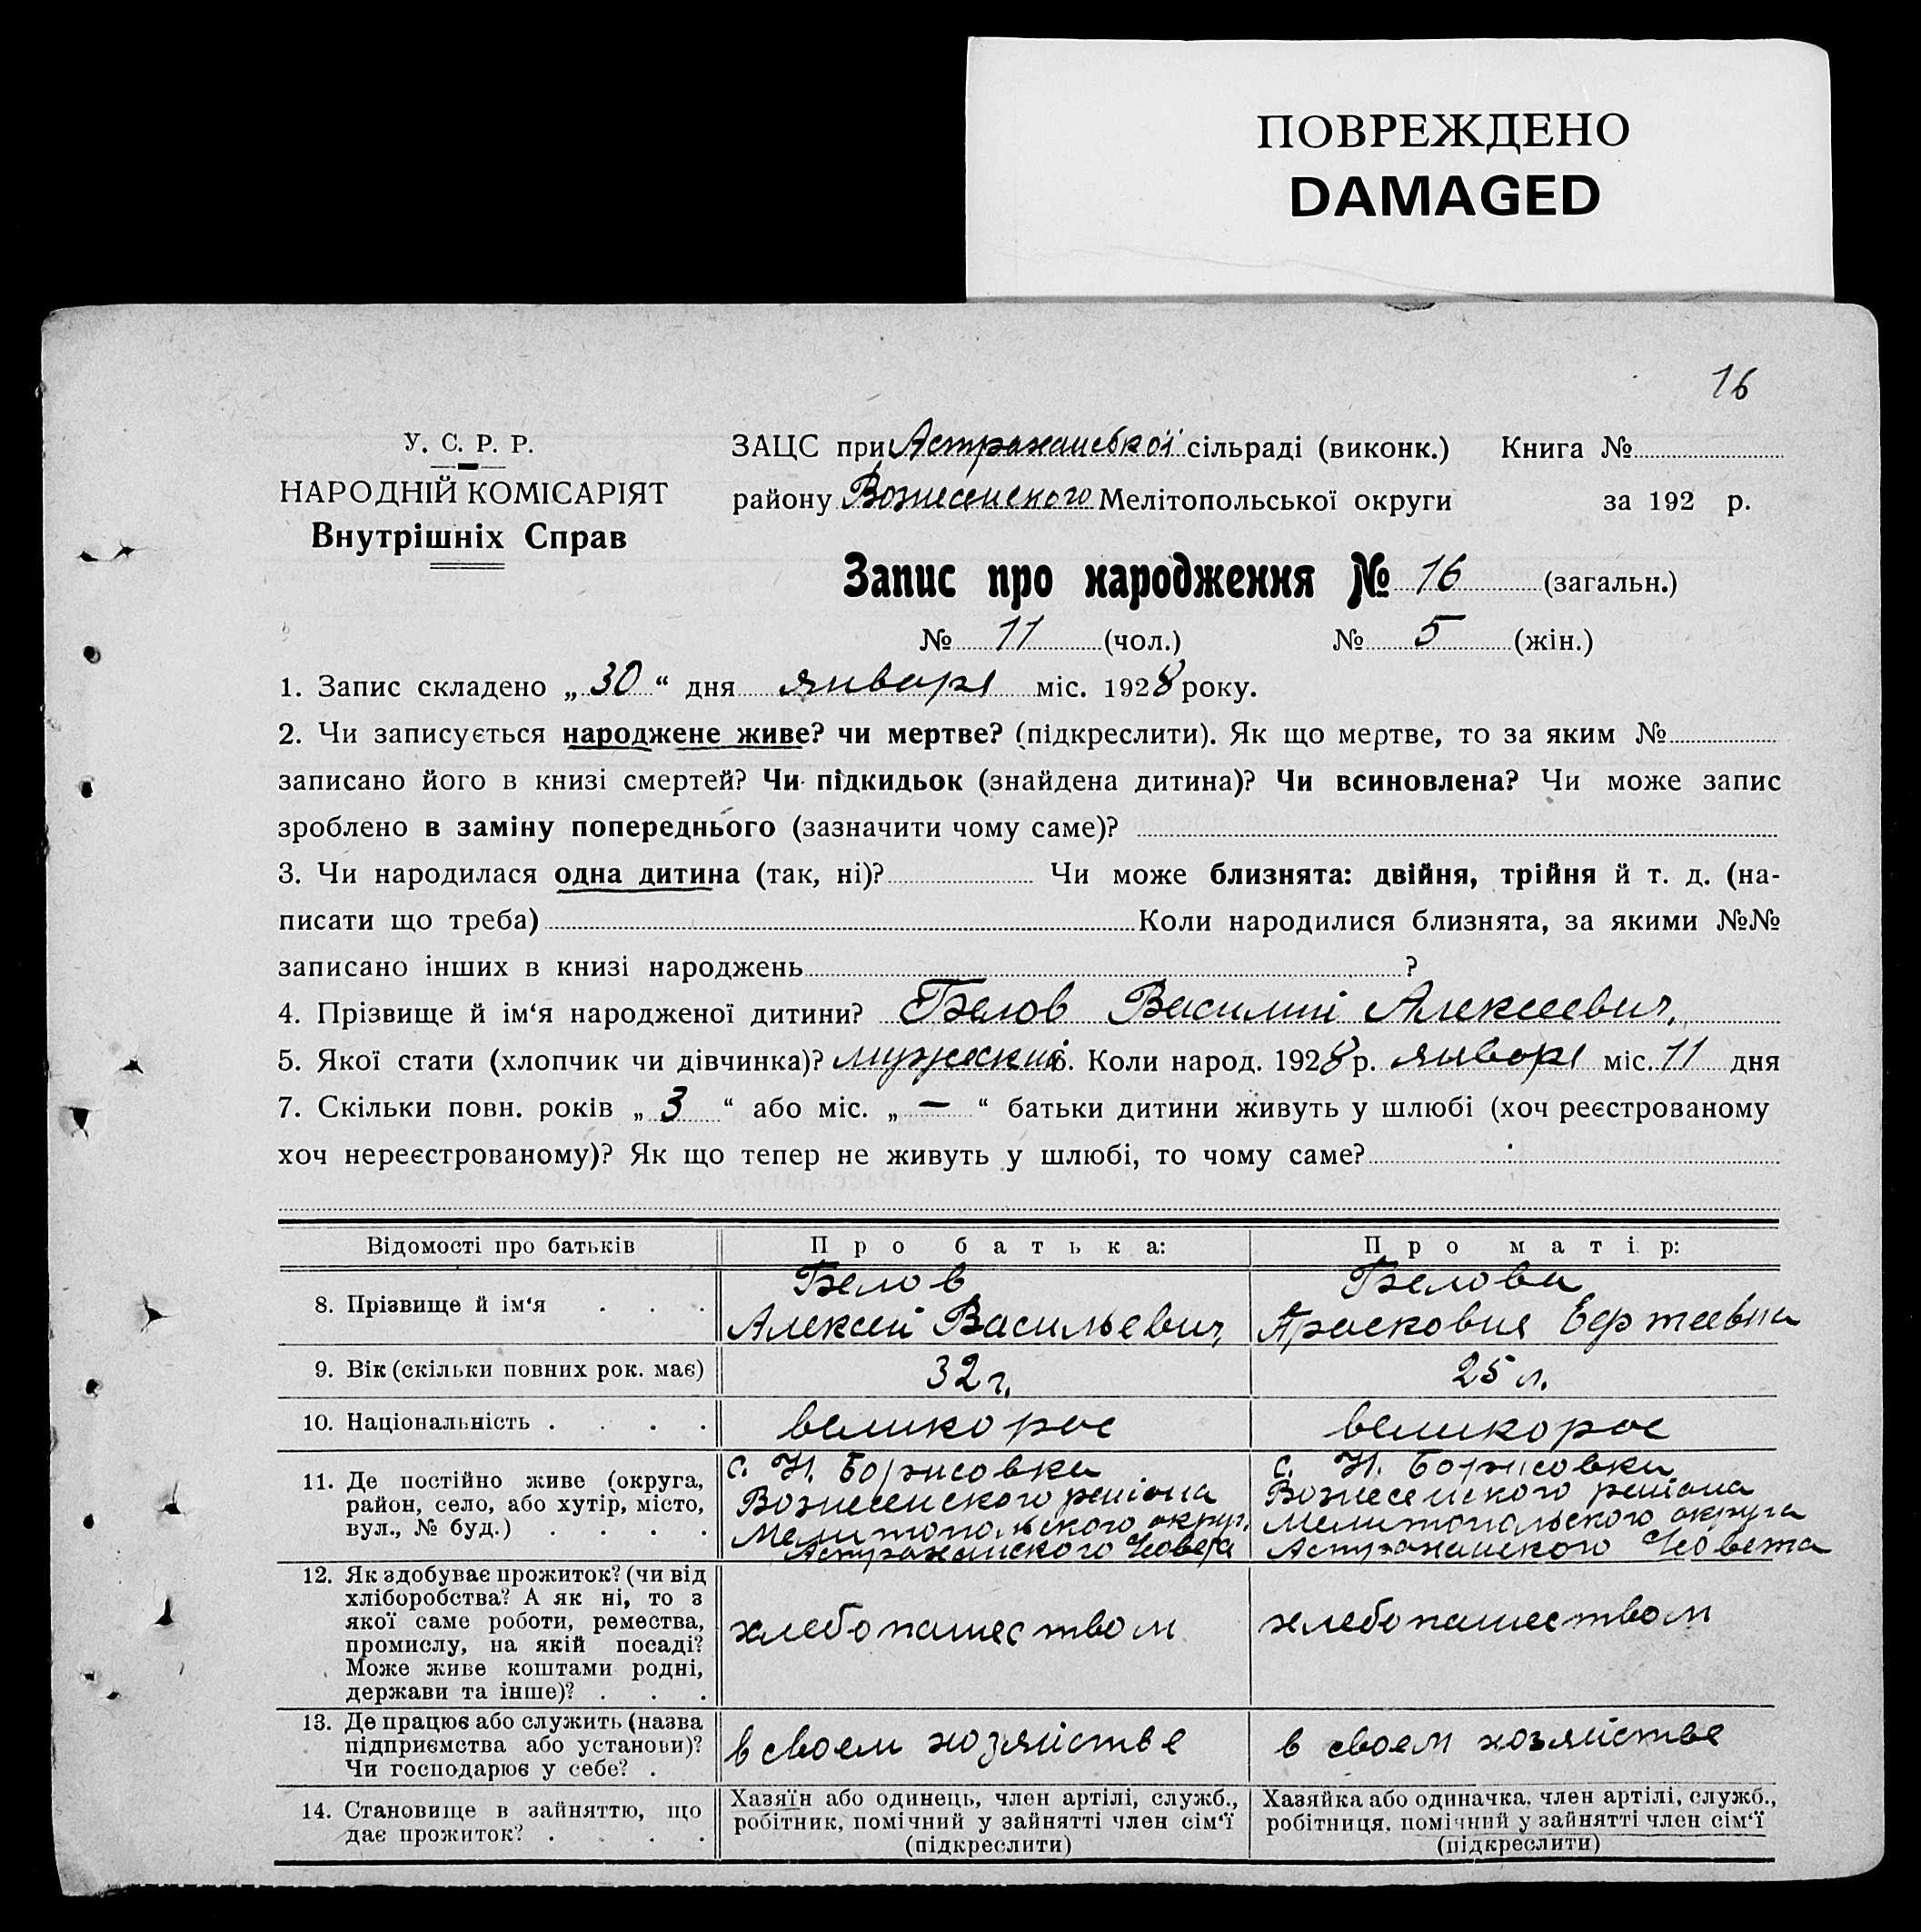 ПОВРЕЖДЕНО
DAMAGED
16
У. С. Р. Р.
НАРОДНІЙ КОМІСАРІЯТ
Внутрішніх Справ
ЗАЦС при Астраханської сільраді (виконк.) Книга №
району Вознесенского Мелітопольської округи за 192 р.
Запис про народження № 16 (загальн.)
№ 11 (чол.) № 5 (жін.)
1. Запис складено „30“ дня января міс. 1928 року.
2. Чи записується народжене живе? чи мертве? (підкреслити). Як що мертве, то за яким №
записано його в книзі смертей? Чи підкидьок (знайдена дитина)? Чи всиновлена? Чи може запис
зроблено в заміну попереднього (зазначити чому саме)?
3. Чи народилася одна дитина (так, ні)? Чи може близнята: двійня, трійня й т. д. (на-
писати що треба) Коли народилися близнята, за якими №№
записано інших в книзі народжень ?
4. Прізвище й ім‘я народженої дитини? Белов Василий Алексеевич.
5. Якої стати (хлопчик чи дівчинка)? мужеский 6. Коли народ. 1928 р. января міс. 11 дня
7. Скільки повн. років „3“ або міс. „—“ батьки дитини живуть у шлюбі (хоч реєстрованому
хоч нереєстрованому)? Як що тепер не живуть у шлюбі, то чому саме?
Відомості про батьків Про батька: Про матір:
8. Прізвище й ім‘я . . .
Белов
Алексей Васильевич
Белова
Прасковия
9. Вік (скільки повних рок. має) 32 г. 25 л.
10. Національність . . . . великорос великорос
11. Де постійно живе (округа,
район, село, або хутір, місто,
вул., № буд.) . . . .
с. Н. Борисовка
Вознесенского района
Мелитопольского округ.
Астраханского Совета
с. Н. Борисовка
Вознесенского района
Мелитопольского округа
Астраханского Совета
12. Як здобуває прожиток? (чи від
хліборобства? А як ні, то з
якої саме роботи, ремества,
промислу, на якій посаді?
Може живе коштами родні,
держави та інше)? . . .
хлебопашеством
хлебопашеством
13. Де працює або служить (назва
підприємства або установи)?
Чи господарює у себе? .
в своем хозяйстве
в своем хозяйстве
14. Становище в зайняттю, що
дає прожиток? . . . .
Хазяїн або одинець, член артілі, служб.,
робітник, помічний у зайнятті член сім‘ї
(підкреслити)
Хазяйка або одиначка, член артілі, служб.,
робітниця, помічний у зайнятті член сім‘ї
(підкреслити)